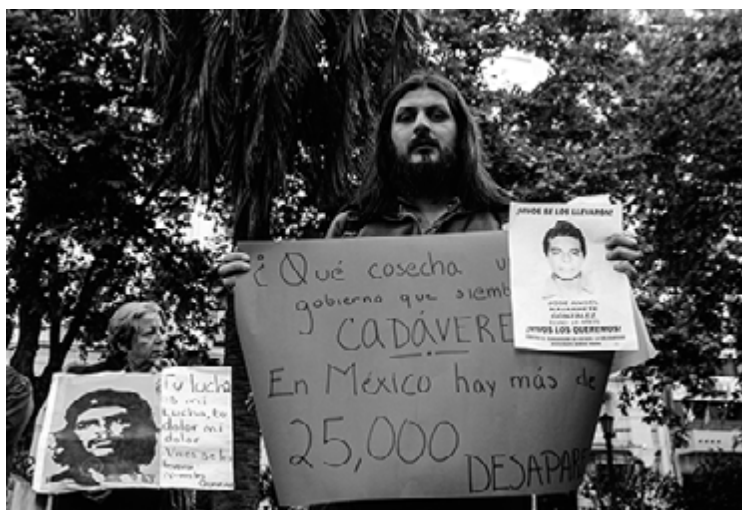 ¿Qué cosecha u
gobierno que siemb
CADÁVERE
En México hay más de
25,000
DESAPARE
¡VIVOS SE LOS LLEVARON!
JOSE ANGEL
NAVARRETE
GONZALEZ
¡VIVOS LOS QUEREMOS!
Tu lucha
es mi
lucha, tu
dolor mi
dolor
Vivos se los